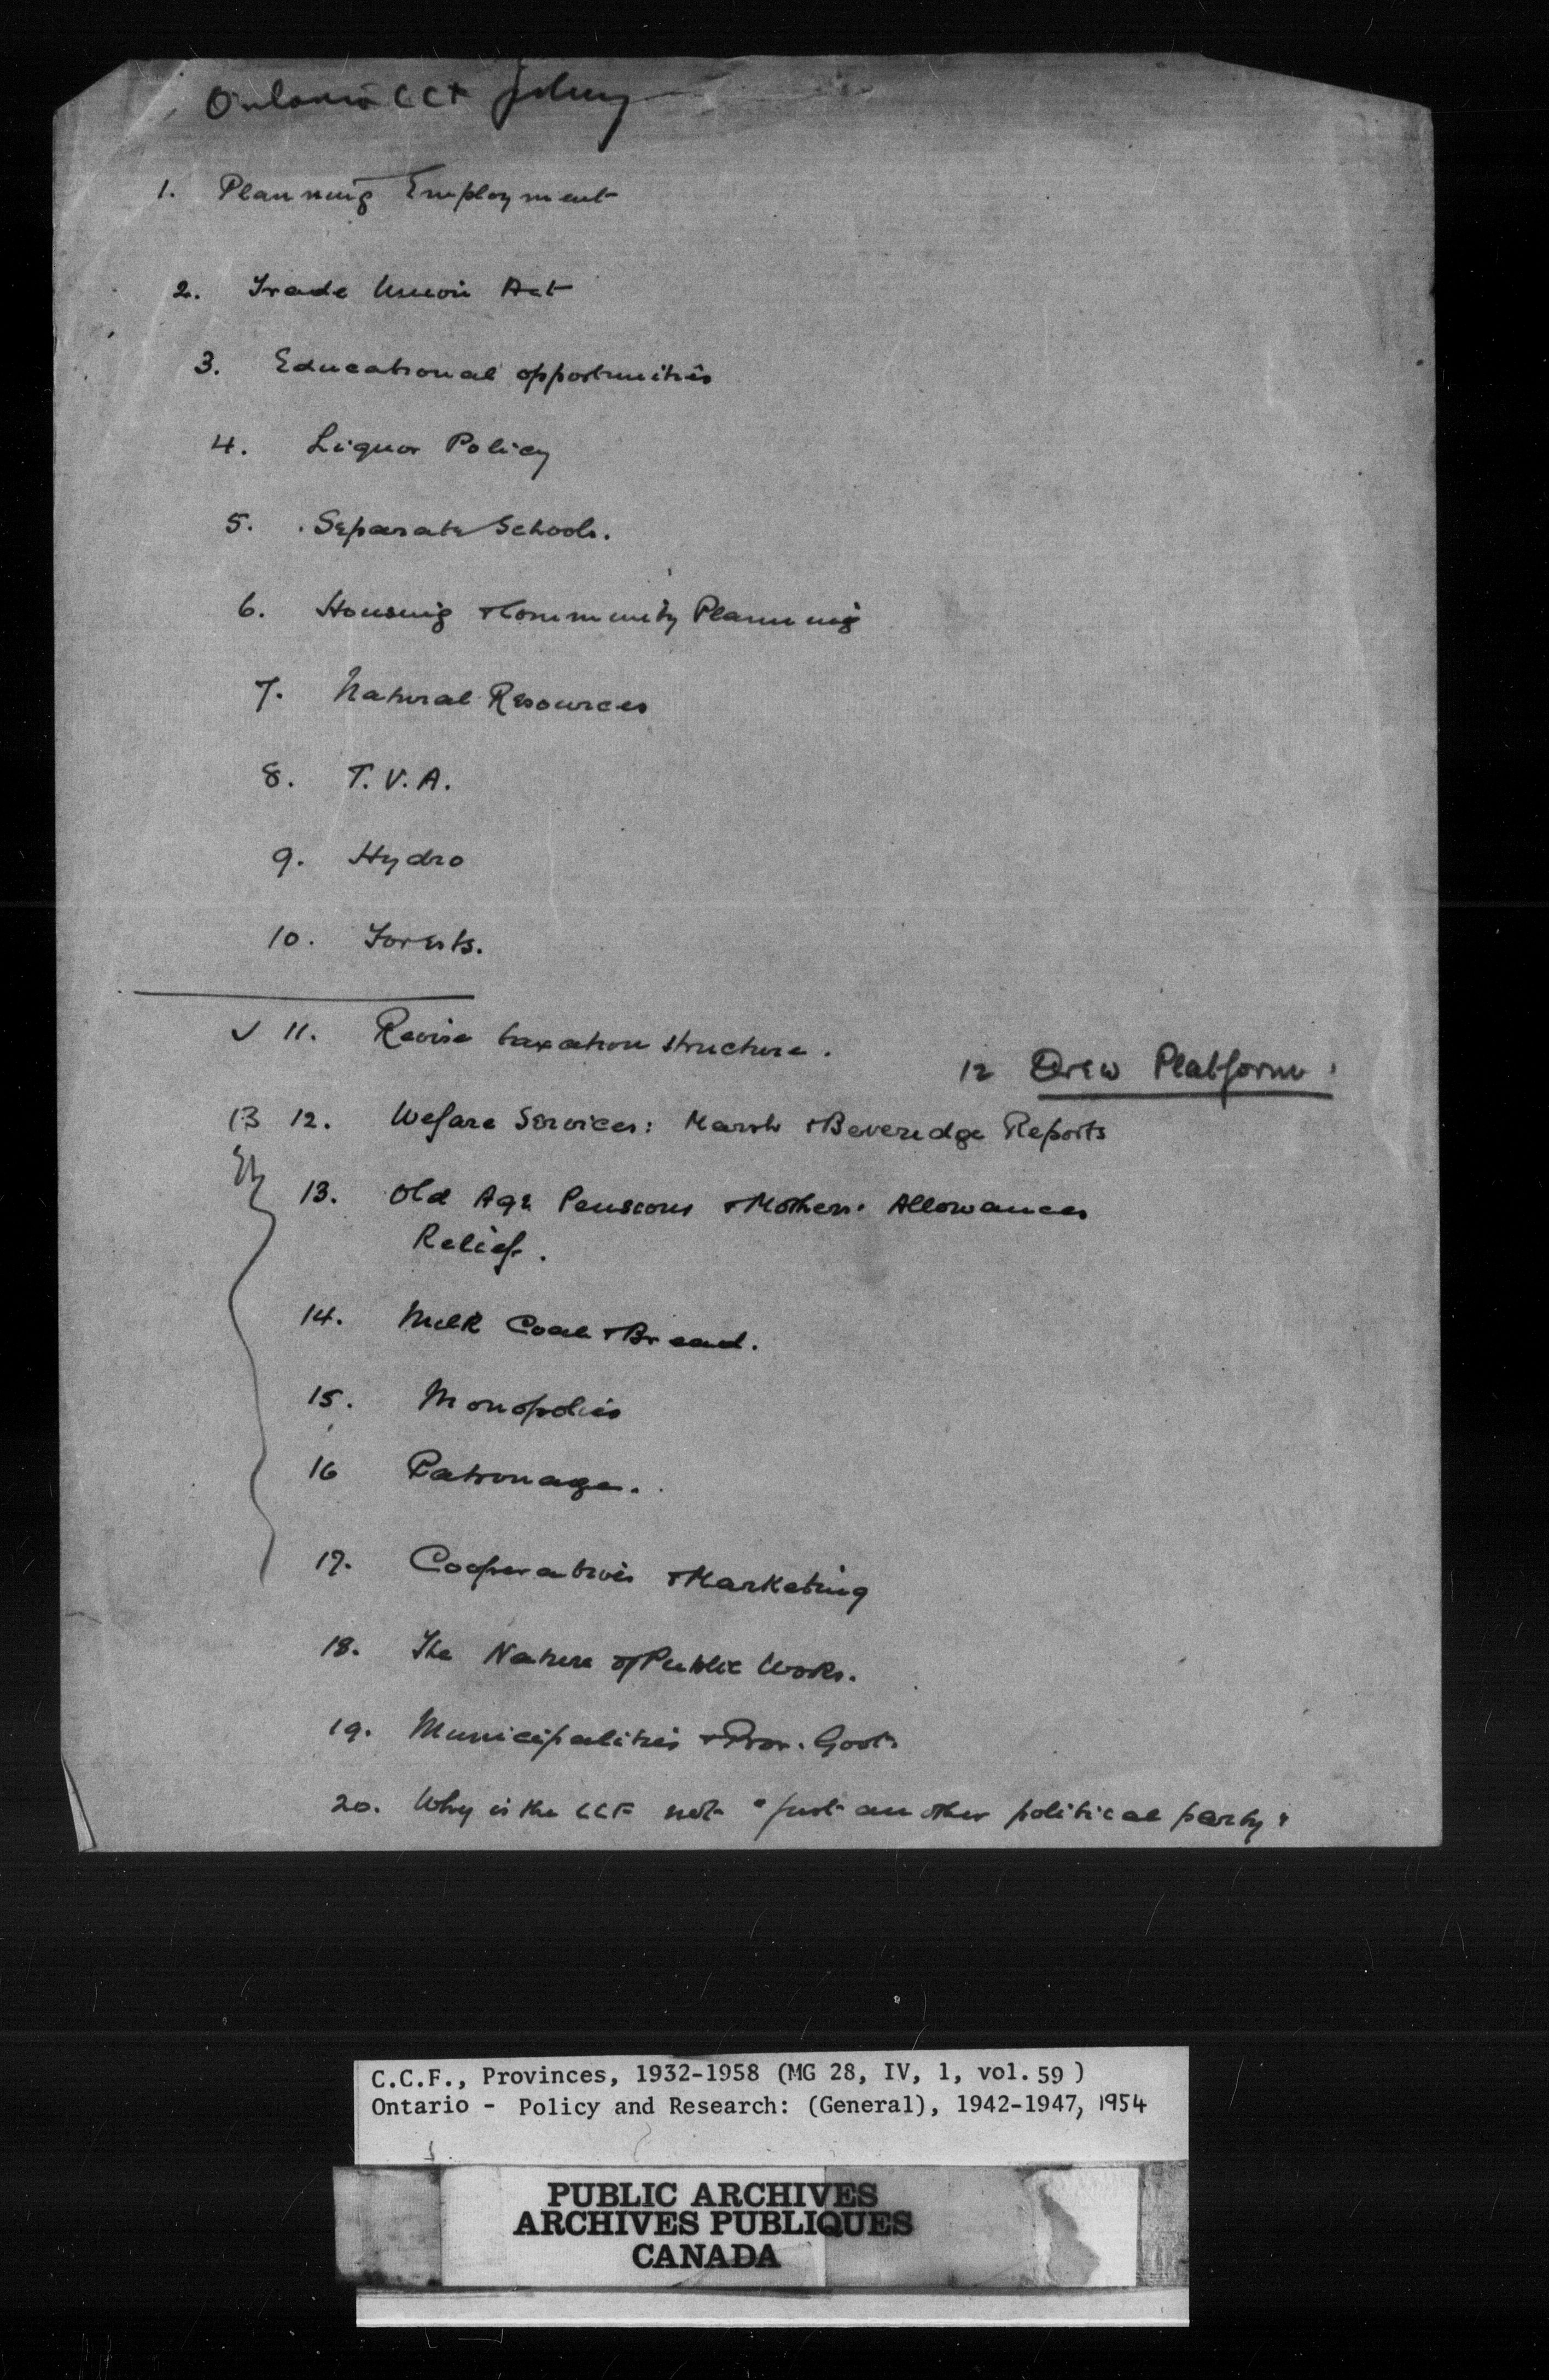 Ontario CCF Policy
1. Planning Employment
2. Trade Union Act
3. Educational opportunities
4. Liquor Policy
5. Separate Schools.
6. Housing + Community Planning
7. Natural Resources
8. T.V.A.
9. Hydro
10. Forests.
✓ 11. Revise taxation structure.
12 Drew Platform.
13 12. Welfare Services: Marsh + Beveridge Reports
13. Old Age Pensions + Mothers' Allowances
Relief.
14. Milk Coal + Bread.
15. Monopolies
16 Patronage.
17. Cooperatives + Marketing
18. The Nature of Public Works.
19. Municipalities + Prov. Govt.
20. Why is the CCF not "just another political party"
C.C.F., Provinces, 1932-1958 (MG 28, IV, 1, vol. 59)
Ontario - Policy and Research: (General), 1942-1947, 1954
PUBLIC ARCHIVES
ARCHIVES PUBLIQUES
CANADA